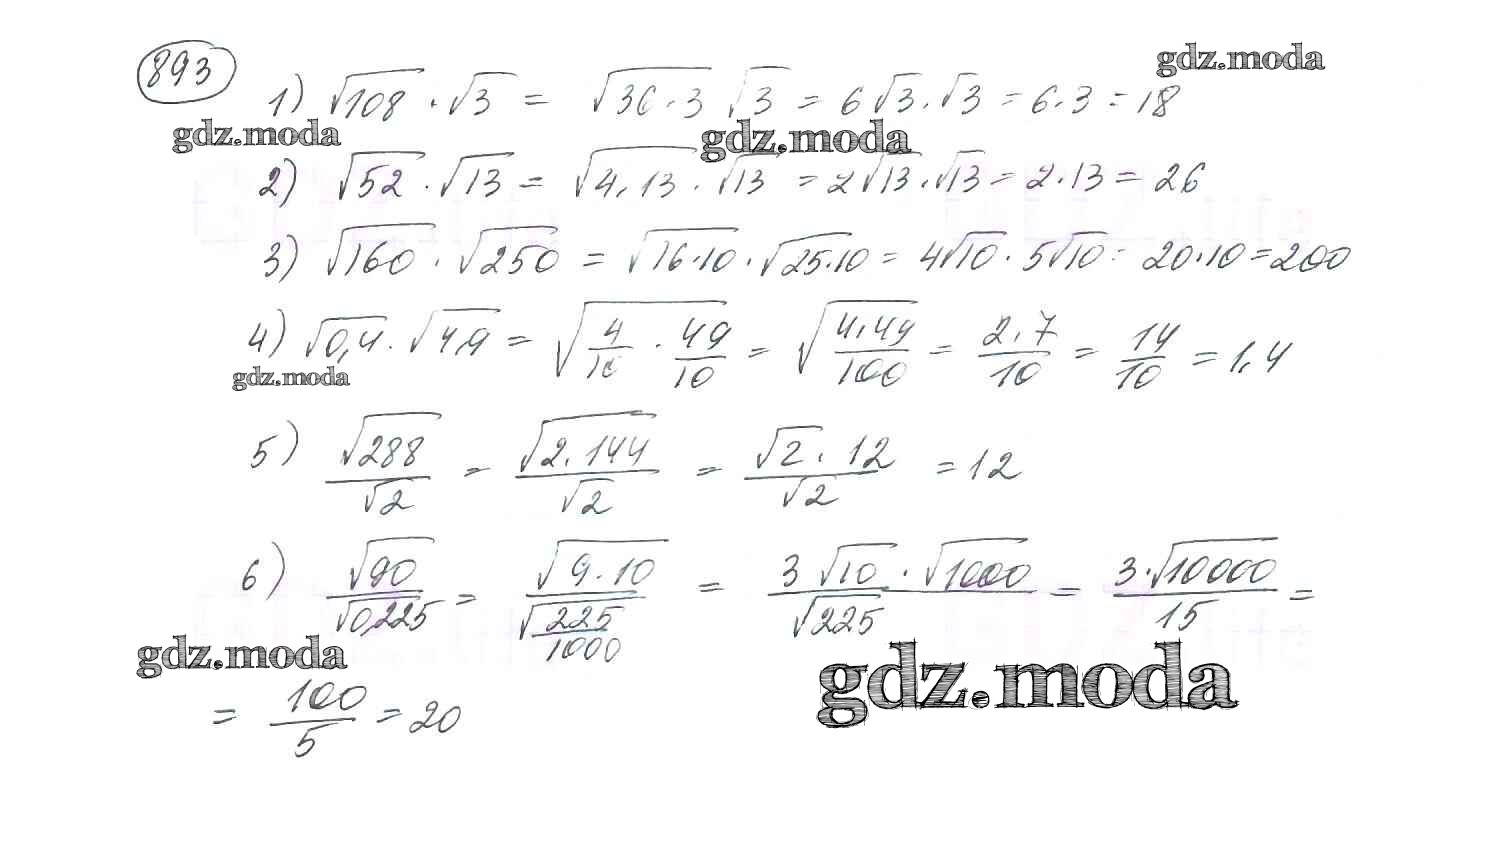 893
gdz.moda
1) √108 · √3 = √36·3 √3 = 6√3·√3 = 6·3 = 18
gdz.moda gdz.moda
2) √52 · √13 = √4·13 · √13 = 2√13·√13 = 2·13 = 26
3) √160 · √250 = √16·10 · √25·10 = 4√10 · 5√10 = 20·10 = 200
4) √0,4 · √4,9 = √(4/10 · 49/10) = √(4·49/100) = 2·7/10 = 14/10 = 1,4
gdz.moda
5) √288/√2 = √2·144/√2 = √2·12/√2 = 12
6) √90/√0,225 = √9·10/√(225/1000) = 3√10·√1000/√225 = 3·√10000/15 =
gdz.moda gdz.moda
= 100/5 = 20